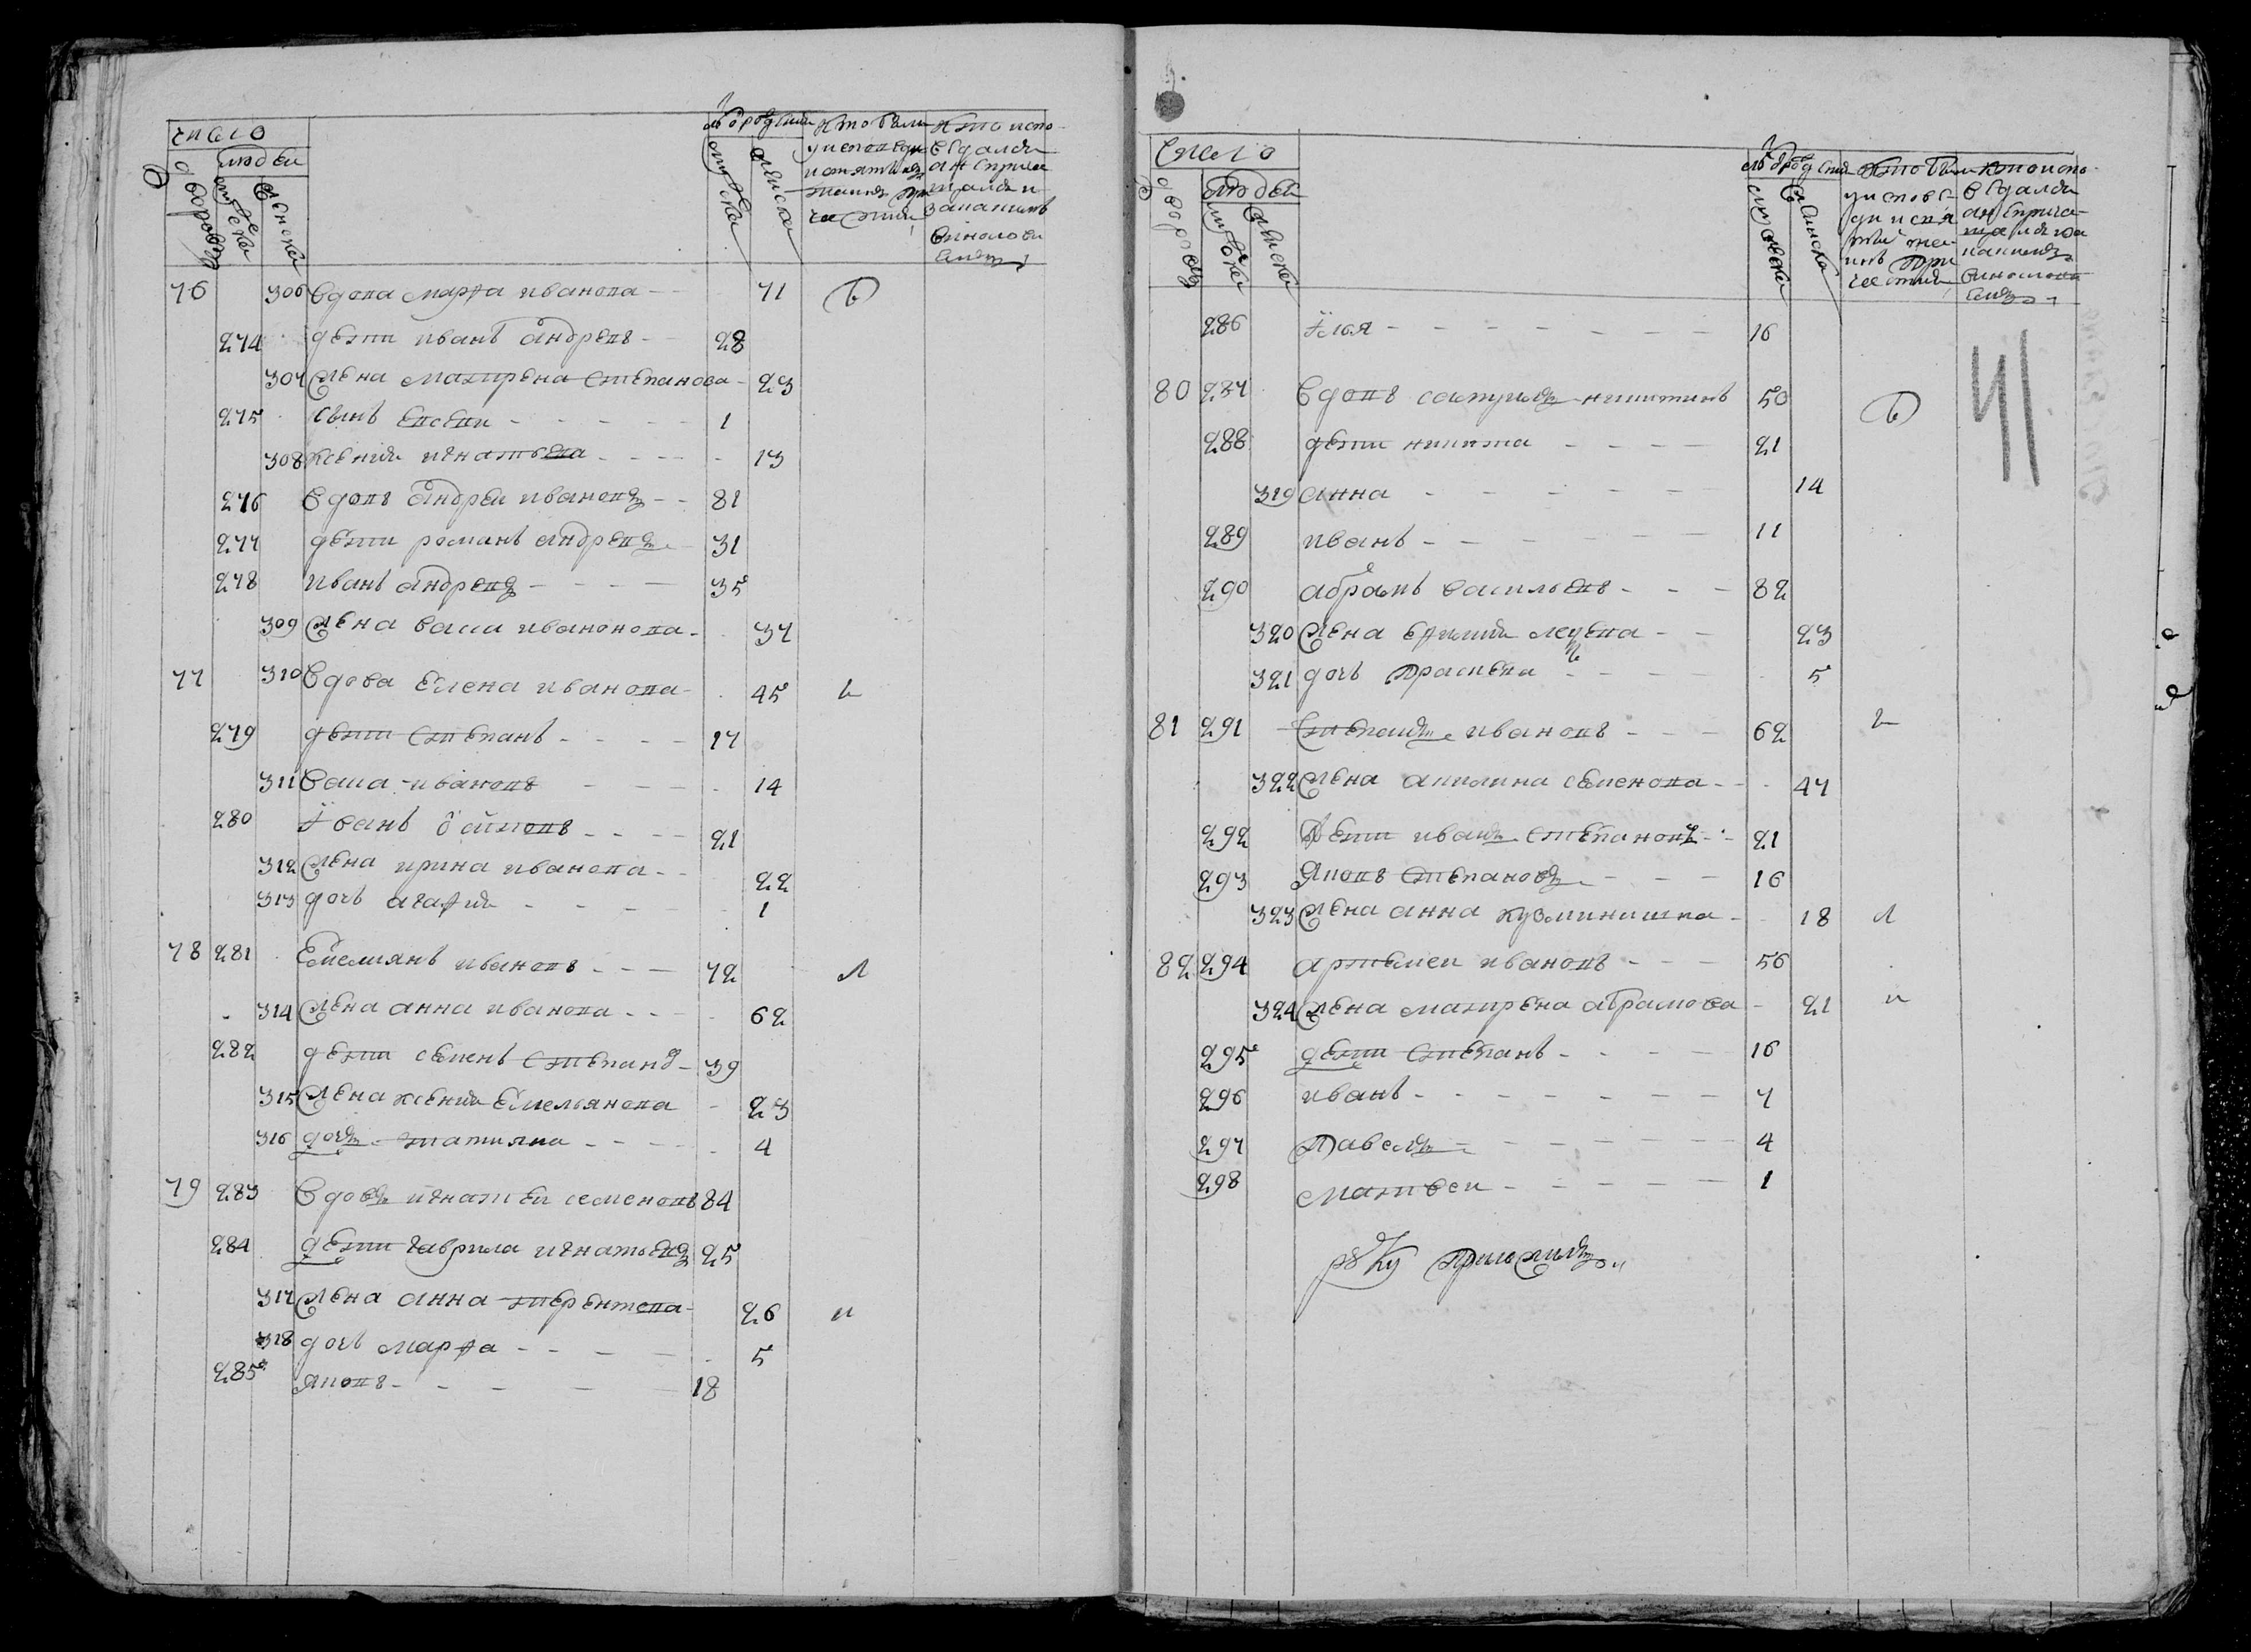 число
дворовъ
людеи
мужеска
женска
мужеска
женска
кто были
у исповеди
и святыхъ
таинъ при
частия
кто испо
ведался
а не прича
щался и
за какимъ
винословиемъ
76 306 вдова марфа иванова 71
274 дети иванъ андреевъ 28
307 жена матрена степанова 23
275 сынъ евсеви 1
308 ксения игнатьева 13
276 вдовъ андреи ивановъ 81
277 дети романъ андреевъ 31
278 иванъ андреевъ 35
309 жена васа ивановова 37
77 310 вдова елена иванова 45
279 дети степанъ 17
311 васа ивановъ 14
280 иванъ 21
312 жена ирина иванова 22
313 дочь агафия 1
78 281 емелиянъ ивановъ 72
314 жена анна иванова 62
282 дети семенъ степанъ 39
315 жена ксения емельянова 23
316 дочь татияна 4
79 283 вдовъ игнатеи семеновъ 84
284 дети гаврила игнатьевъ 25
317 жена анна терентева 26
318 дочь марфа 5
285 яковъ 18
число
дворовъ
людеи
мужеска
женска
мужеска
женска
кто были
у испове
ди и свя
тыи таи
инъ при
частия
кто испо
ведался
а не прича
щался и за
какимъ
винослови
емъ
41
286 илья 16
80 287 вдовъ самуилъ никитинъ 50
288 дети никита 21
319 анна 14
289 иванъ 11
290 абрамъ васильевъ 82
320 жена ефимия 23
321 дочь праскева 5
81 291 степанъ ивановъ 62
322 жена акилина семенова 47
292 дети иванъ степановъ 21
293 яковъ степановъ 16
323 жена анна кузминишна 18
82 294 артемеи ивановъ 56
324 жена матрена абрамова 21
295 дети степанъ 16
296 иванъ 7
297 павелъ 4
298 матвеи 1
руку приложилъ